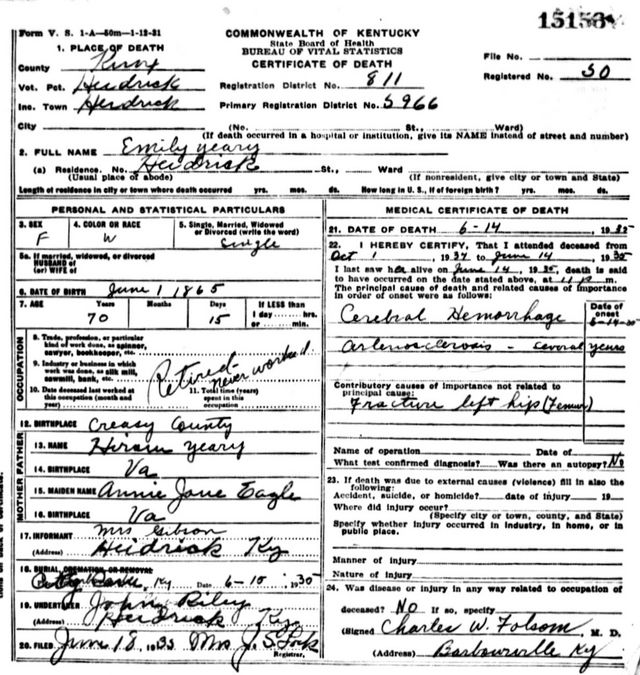 15153
Form V. S. 1-A—50m—1-12-31
COMMONWEALTH OF KENTUCKY
State Board of Health
BUREAU OF VITAL STATISTICS
CERTIFICATE OF DEATH
1. PLACE OF DEATH
County Knox
Vot. Pct. Heidrick
Inc. Town Heidrick
Registration District No. 811
Primary Registration District No. 5966
File No.
Registered No. 50
City (No. St., Ward)
(If death occurred in a hospital or institution, give its NAME instead of street and number)
2. FULL NAME Emily Yeary
(a) Residence. No. Heidrick St., Ward
(Usual place of abode) (If nonresident, give city or town and State)
Length of residence in city or town where death occurred yrs. mos. ds. How long in U. S., if of foreign birth? yrs. mos. ds.
PERSONAL AND STATISTICAL PARTICULARS
3. SEX F
4. COLOR OR RACE W
5. Single, Married, Widowed or Divorced (write the word) Single
5a. If married, widowed, or divorced
HUSBAND of
(or) WIFE of
6. DATE OF BIRTH June 1 1865
7. AGE Years 70 Months Days 15 If LESS than 1 day hrs. or min.
OCCUPATION
8. Trade, profession, or particular kind of work done, as spinner, sawyer, bookkeeper, etc. Retired-
9. Industry or business in which work was done, as silk mill, sawmill, bank, etc. never worked
10. Date deceased last worked at this occupation (month and year)
11. Total time (years) spent in this occupation
12. BIRTHPLACE Creasy County
MOTHER FATHER
13. NAME Hiram Yeary
14. BIRTHPLACE Va
15. MAIDEN NAME Annie Jane Eagle
16. BIRTHPLACE Va
17. INFORMANT Mrs Gibson
(Address) Heidrick Ky
18. BURIAL, CREMATION OR REMOVAL
Ky Date 6-15, 1935
19. UNDERTAKER John Riley
Heidrick Ky
(Address)
20. FILED June 18 1935 Mrs J. S.
Registrar.
MEDICAL CERTIFICATE OF DEATH
21. DATE OF DEATH 6-14, 1935
22. I HEREBY CERTIFY, That I attended deceased from
Oct 1, 1934 to June 14, 1935
I last saw her alive on June 14, 1935, death is said
to have occurred on the date stated above, at m.
The principal cause of death and related causes of importance
in order of onset were as follows:
Date of onset
Cerebral Hemorrhage 6-14-35
Arteriosclerosis - several years
Contributory causes of importance not related to
principal cause:
Fracture left hip (Femur)
Name of operation Date of
What test confirmed diagnosis? Was there an autopsy? No
23. If death was due to external causes (violence) fill in also the
following:
Accident, suicide, or homicide? date of injury 19
Where did injury occur?
(Specify city or town, county, and State)
Specify whether injury occurred in industry, in home, or in
public place.
Manner of injury
Nature of injury
24. Was disease or injury in way related to occupation of
deceased? No If so, specify
(Signed Charles W. Folsom, M. D.
(Address) Barbourville Ky